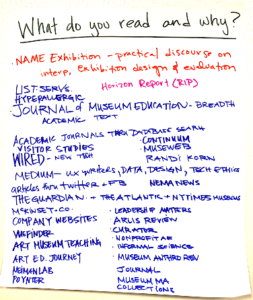 What do you read and why?
• NAME Exhibition – practical discourse on
interp, exhibition design & evaluation
LIST SERVS
Horizon Report (RIP)
HYPERALLERGIC
JOURNAL of MUSEUM EDUCATION – BREADTH
ACADEMIC TEXT
ACADEMIC JOURNALS THRU DATABASE SEARCH
VISITOR STUDIES
• CONTINUUM
• MUSEWEB
WIRED – NEW TECH
RANDI KORN
MEDIUM – UX WRITERS, DATA, DESIGN, TECH ETHICS
articles from twitter + FB
NEMA NEWS
THE GUARDIAN + THE ATLANTIC + NYTIMES MUSEUMS
MCKINSEY.CO.
• LEADERSHIP MATTERS
COMPANY WEBSITES
• ARLIS REVIEW
• CURATOR
• NONPROFIT AF
ART MUSEUM TEACHING
• INFORMAL SCIENCE
ART ED. JOURNEY
• MUSEUM ANTHRO REV
JOURNAL
POYNTER
• MUSEUM MA
COLLECTIONS